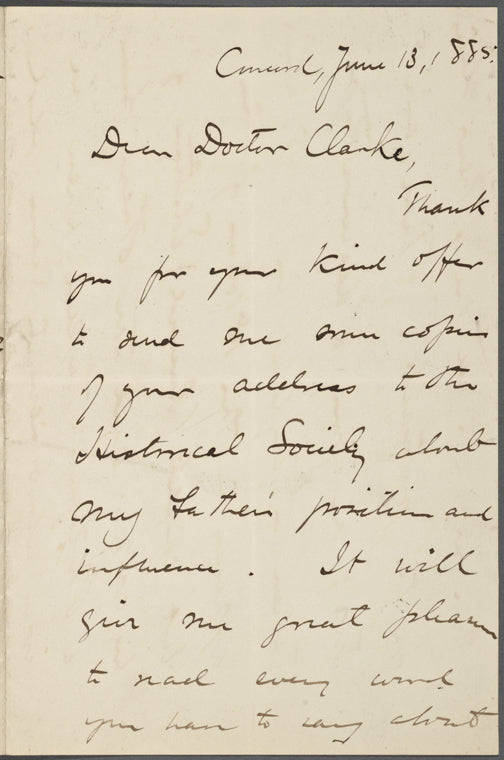 Concord, June 13, 1885.
Dear Doctor Clarke,
Thank
you for your kind offer
to send me some copies
of your address to the
Historical Society about
my Father's position and
influence. It will
give me great pleasure
to read every word
you have to say about